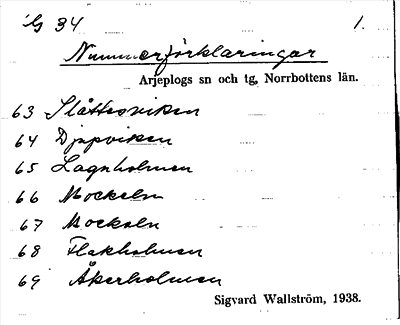 G 34 1.
Nummerförklaringar
Arjeplogs sn och tg, Norrbottens län.
63 Slåttesviken
64 Djupviken
65 Lagnholmen
66 Mockeln
67 Mockeln
68 Flakholmen
69 Åkerholmen
Sigvard Wallström, 1938.